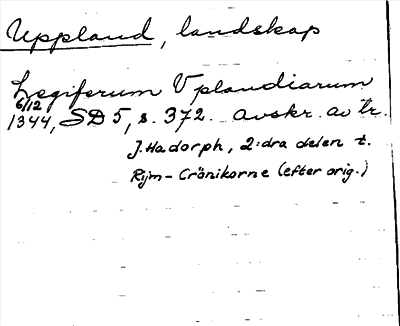 Uppland, landskap
Legiferum Uplandiarum
6/12
1344, SD 5, s. 372. avskr. av tr.
J. Hadorph, 2:dra delen t.
Rijm-Crönikorne (efter orig.)